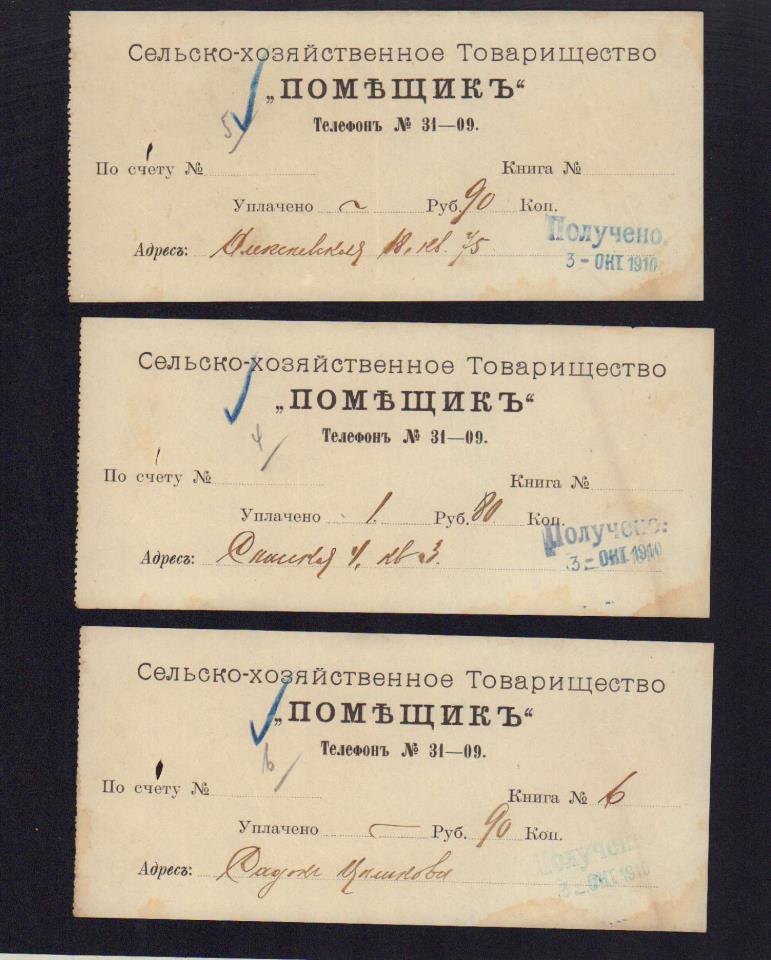 Сельско-хозяйственное Товарищество
„ПОМѢЩИКЪ“
5/
Телефонъ № 31—09.
По счету № Книга №
Уплачено Руб. 90 Коп.
Получено.
3 - ОКТ 1910
Адресъ: 18, кв. 75
Сельско-хозяйственное Товарищество
„ПОМѢЩИКЪ“
Телефонъ № 31—09.
4/
По счету № Книга №
Уплачено 1. Руб. 80 Коп.
Получено.
3 - ОКТ 1910
Адресъ: Спасская 4, кв 3.
Сельско-хозяйственное Товарищество
„ПОМѢЩИКЪ“
Телефонъ № 31—09.
6/
По счету № Книга № 6
Уплачено — Руб. 90 Коп.
Получено
3 - ОКТ 1910
Адресъ: